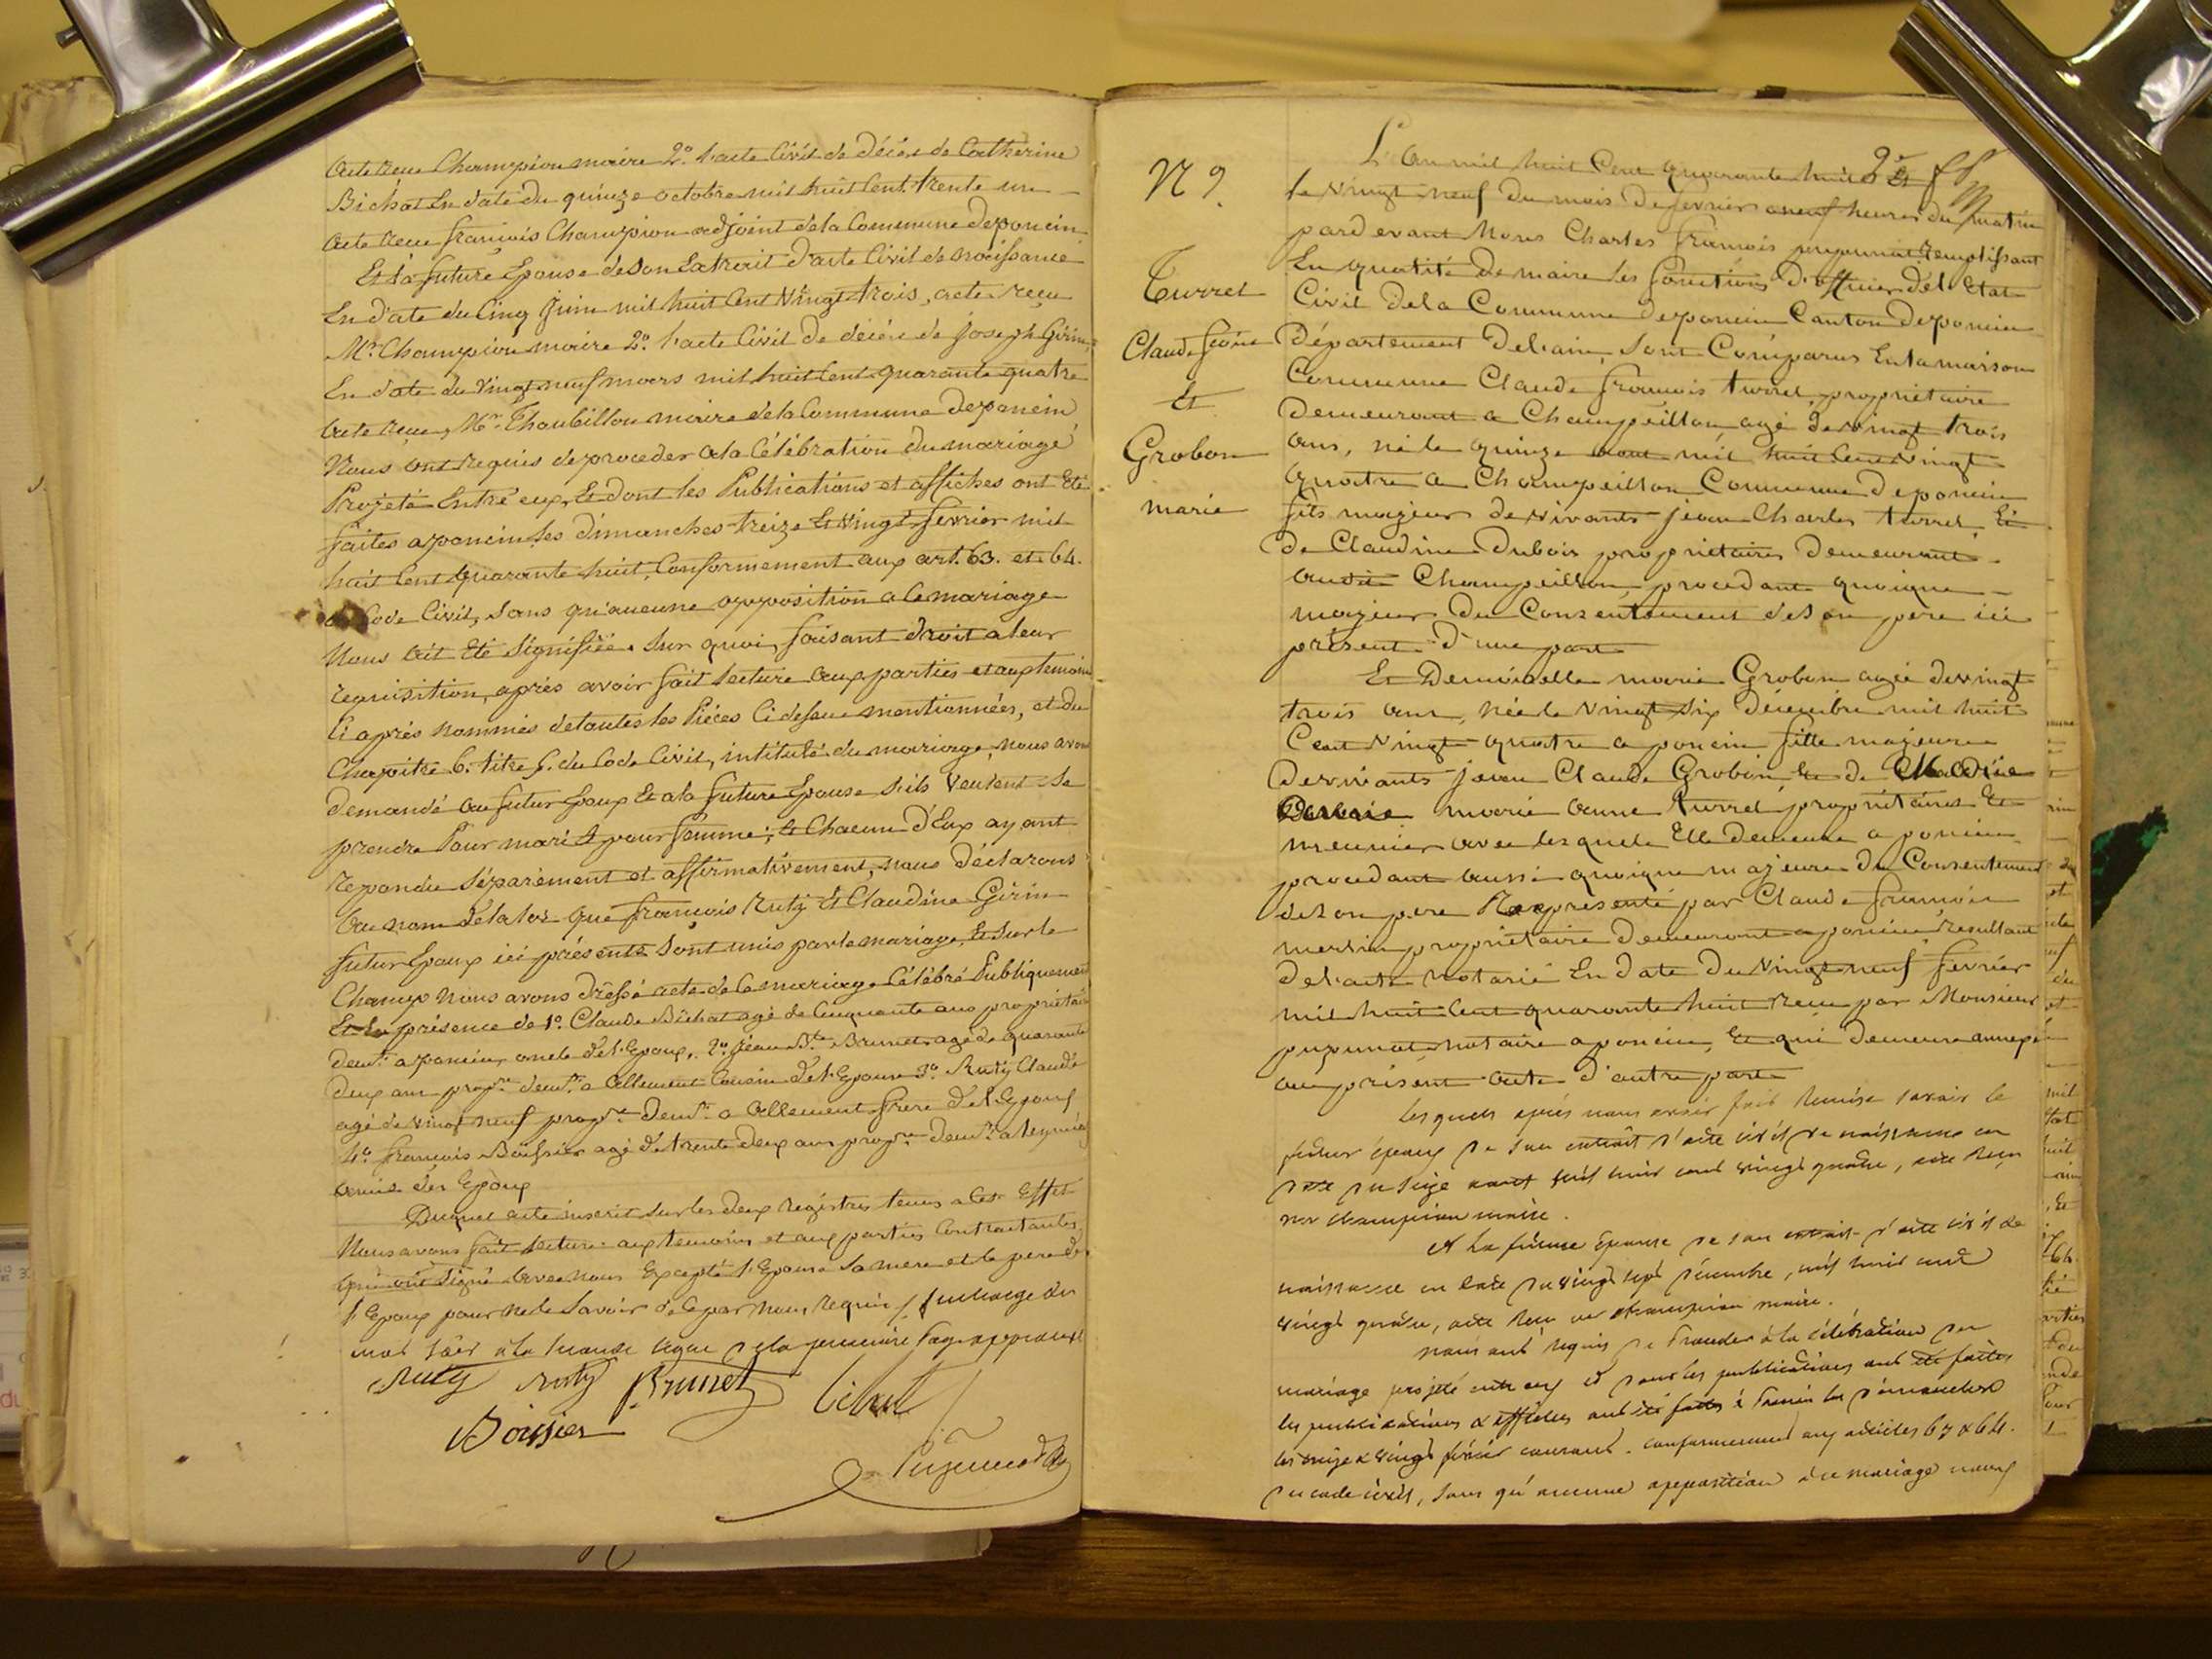 acte recu Champion maire 2º. l'acte Civil de décès de Catherine
Bichat En date du quinze octobre mil huit Cent trente un
acte recu françois Champion adjoint dela Commune deponcin
Et la future Epouse deson Extrait d'acte Civil de naissance
En date du Cinq Juin mil huit Cent Vingt trois, acte reçu
Mr. Champion maire 2º. l'acte Civil de décès de joseph Girin
En date du Vingt neuf mars mil huit Cent quarante quatre
acte recu, Mr. Thoubillon maire dela Commune deponcin
Nous ont requis de proceder ala Célébration du mariage
Projeté Entre eux, Et dont les Publications et affiches ont Eté
faites aponcin les dimanches treize Et Vingt fevrier mil
huit Cent quarante huit, Conformement aux art. 63. et 64.
du Code Civil, Sans qu'aucune opposition a Ce mariage
Nous ait Eté Signifiée. Sur quoi, faisant droit a leur
requisition, après avoir fait lecture aux parties et aux temoins
Ci après nommés de toutes les Pièces Ci dessus mentionnées, et du
Chapitre 6. titre 5. du Code Civil, intitulé du mariage, nous avons
demandé au futur Epoux Et ala future Epouse S'ils Veulent Se
prendre Pour mari Et pour femme; Et Chacun d'Eux ayant
repondu Séparement et affirmativement, nous déclarons
au nom de la loi que françois Ruty Et Claudine Girin
futur Epoux ici présents Sont unis par le mariage, Et Sur le
Champ Nous avons dressé acte de Ce mariage Célébré Publiquement
Et En présence de 1º. Claude Bichat agé de Cinquante ans propriétaire
demt. aponcin, oncle de l'Epoux, 2º. jean Bte. Brunet agé de quarante
deux ans propre. demt. a Allement Cousin de l'Epouse 3º. Ruty Claude
agé de Vingt neuf propre. demt. a Allement frere de l'Epoux
4º. francois Boissier agé de trente deux ans propre. demt. a
amis des Epoux
Duquel acte inscrit sur les deux registres tenus a Cet Effet
Nous avons fait lecture aux temoins et aux parties Contractantes
qui ont Signé avec nous Excepté l'Epouse Sa mere et le pere de
l'Epoux pour ne le Savoir de Ce par nous requis / surcharge du
mot de la premiere page approuvé
Ruty Ruty Brunet Bichat
Boissier
Pugunat
N 9. L'an mil huit Cent quarante huit Et 
le Vingt neuf du mois De fevrier a neuf heures du matin
pardevant Nous Charles francois pugunat remplissant
En qualité De maire les fonctions D'officier de l'Etat
Turrel Civil De la Commune Deponcin Canton Deponcin
Claude fcois Département De l'ain, Sont Comparus En la maison
Et Commune Claude francois turrel, propriétaire
Demeurant a Champeillon agé de vingt trois
Grobon ans, né le quinze aout mil huit Cent Vingt
quatre a Champeillon Commune Deponcin
marie fils majeur de vivants jean Charles turrel Et
de Claudine Dubois propriétaires Demeurant
audit Champeillon, procedant quoique
majeur, Du Consentement de Son pere ici
présent D'une part
Et Demoiselle marie Grobon agée de vingt
trois ans, née le Vingt Six décembre mil huit
Cent Vingt quatre a poncin fille majeure
de vivants jean Claude Grobon Et de
marie anne turrel, propriétaires Et
meunier avec lesquels Elle demeure a poncin
procedant aussi quoique majeure du Consentement
de Son pere Représenté par Claude francois
propriétaire Demeurant a poncin, Résultant
De l'acte Notarié En Date Du Vingt neuf fevrier
mil huit Cent quarante huit recu par Monsieur
pugunat, notaire a poncin, Et qui Demeure annexé
au présent acte D'autre part
Lesquels après nous avoir fait Remise savoir le
futur époux de son extrait d'acte civil de naissance en
date du Seize aout mil huit cent vingt quatre, acte Reçu
Mr Champion maire.
et la future Epouse de son extrait d'acte civil de
naissance en date du vingt sept décembre, mil huit cent
vingt quatre, acte Reçu Mr champion maire.
nous ont requis de Proceder à la célébration du
mariage projeté entre eux et dont les publications ont été faites
les publications & affiches ont été faites à Poncin les dimanches
les treize & vingt février courant. conformement aux articles 63 & 64.
du code civil, sans qu'aucune opposition à ce mariage nous